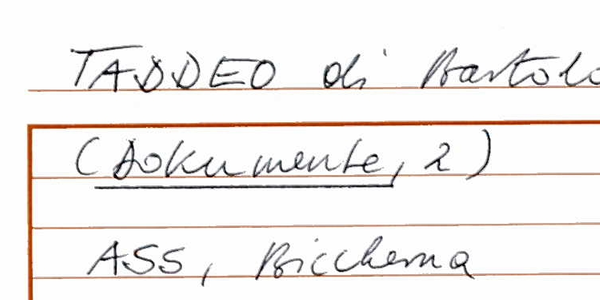 TADDEO di Bartolo
(Dokumente, 2)
ASS, Biccherna